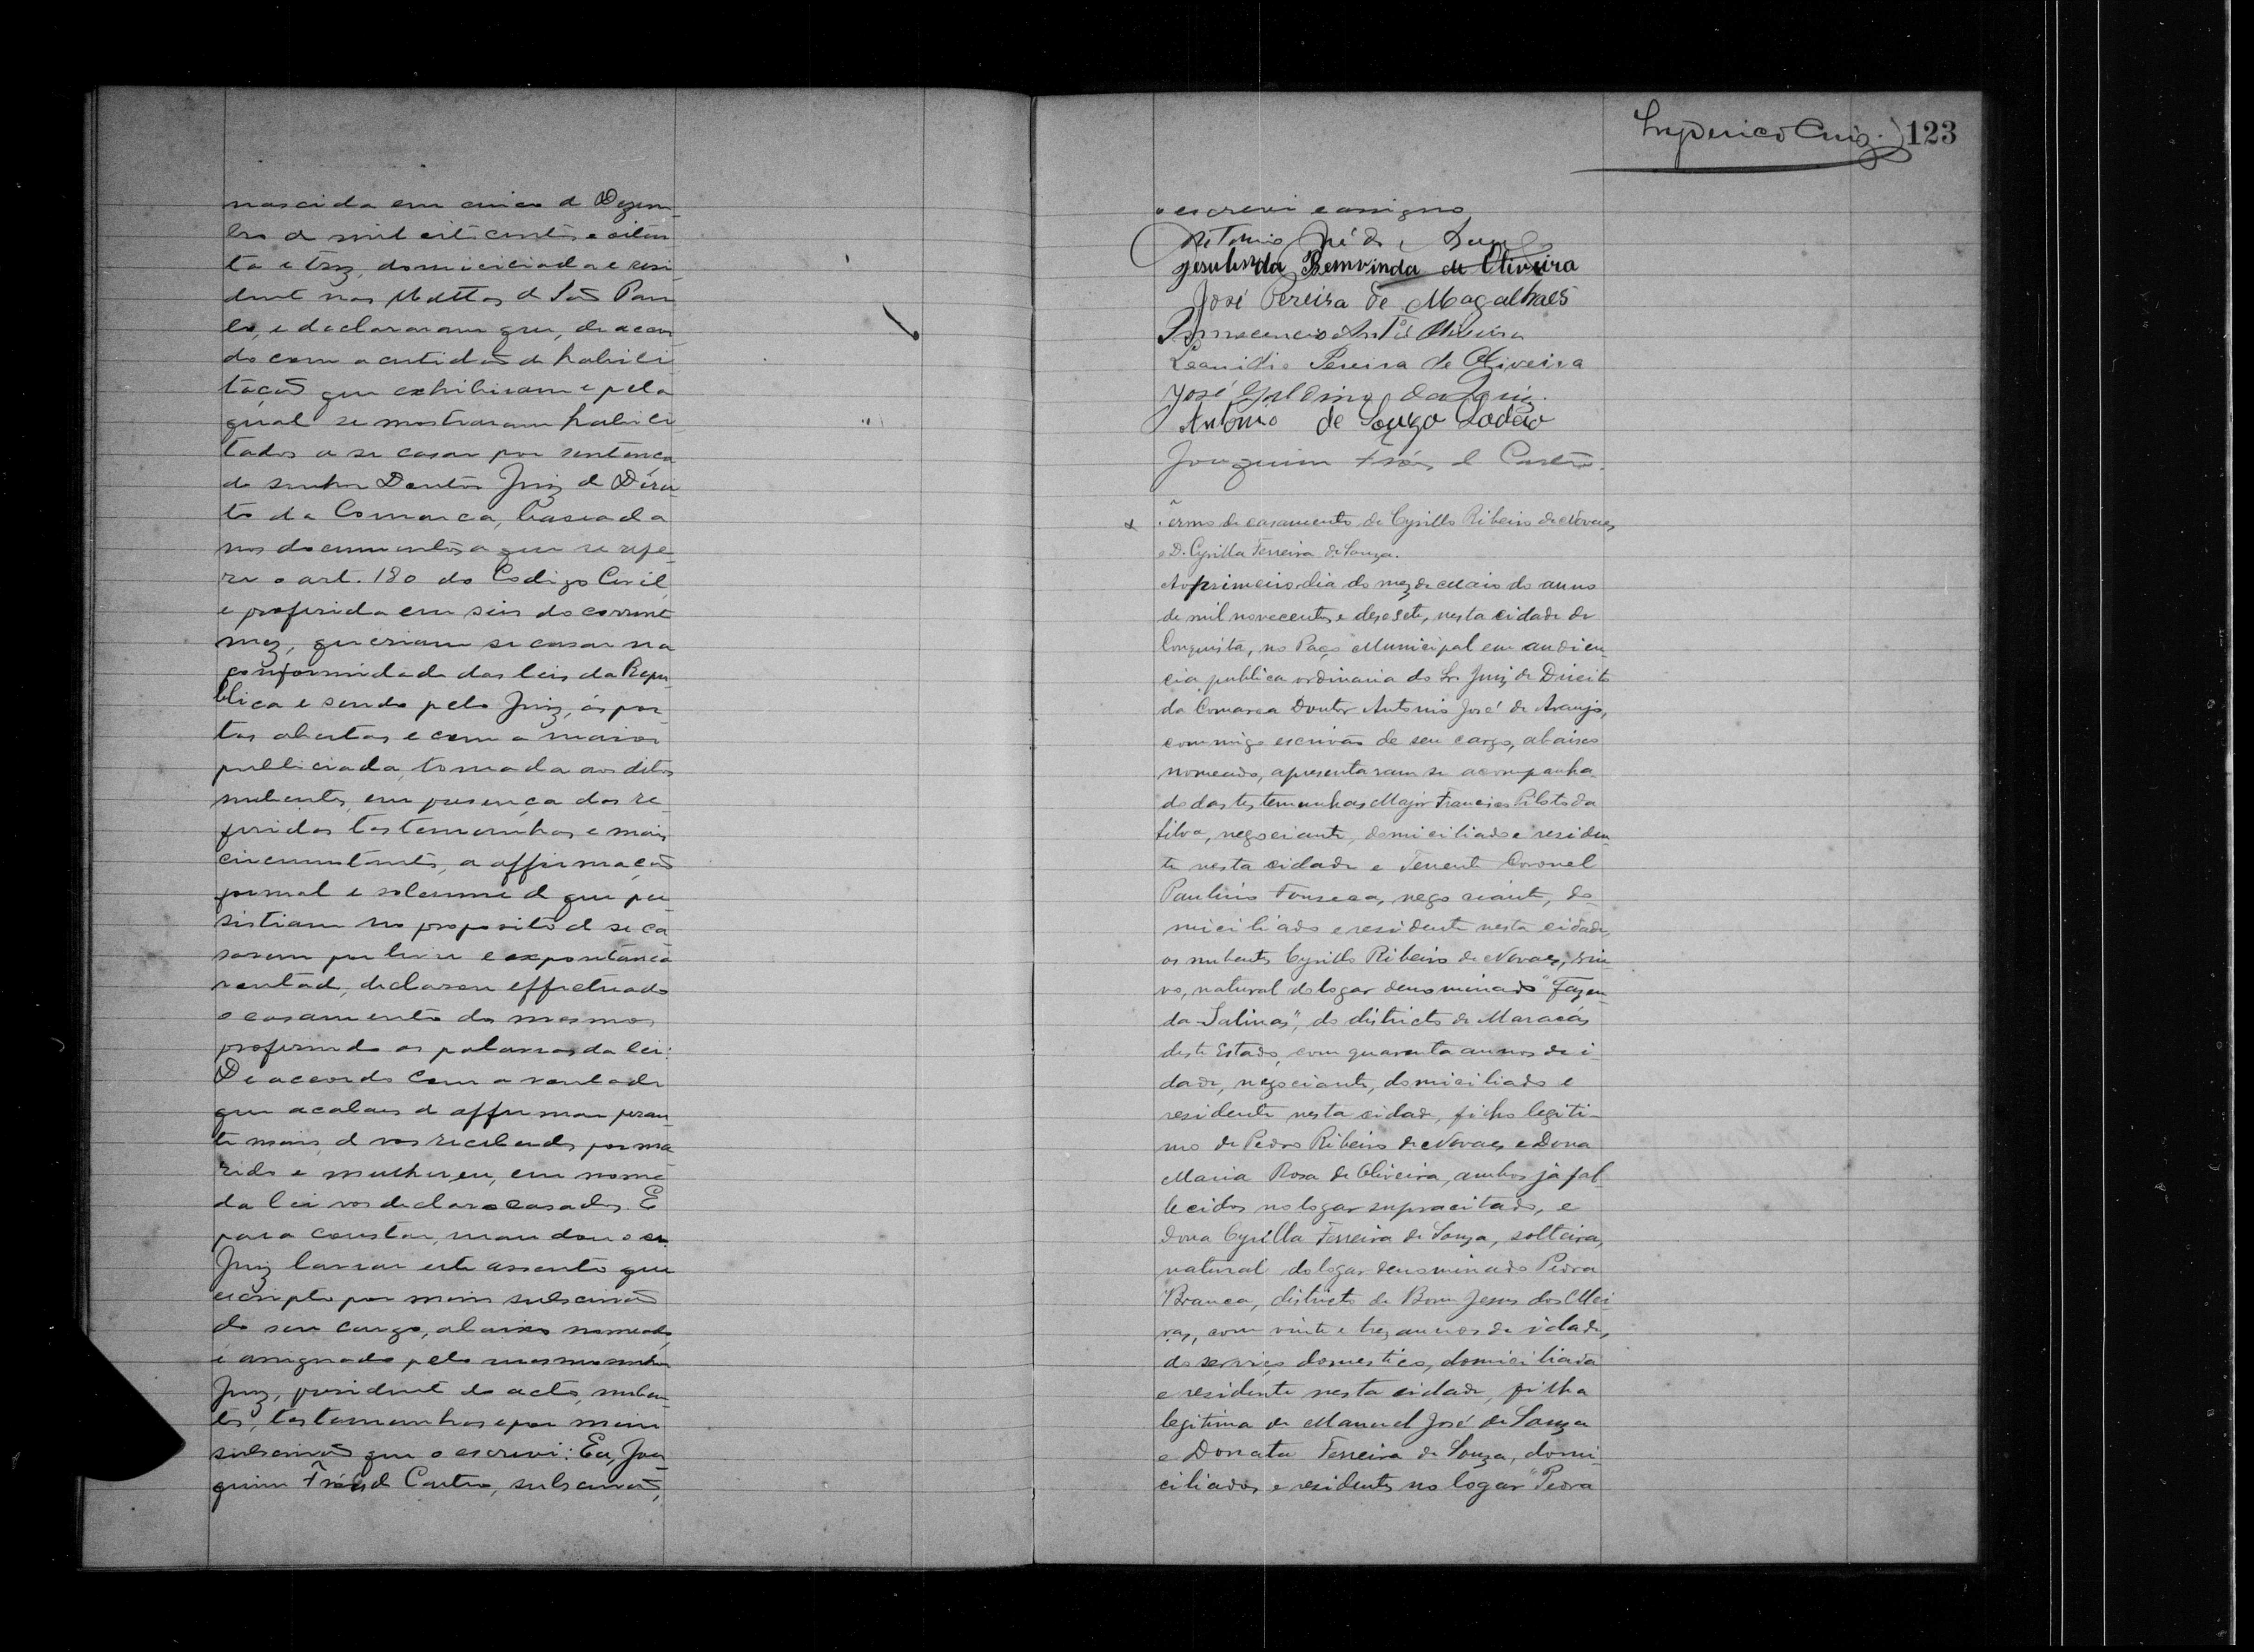 nascida em cinco de Dezem-
bro de mil oitocentos e oiten
ta e trez, domiciliada e resi
dente nas Mattas de São Pau
lo, e declararam que, de accor
do com a certidão de habili
tação que exhibiram e pela
qual se mostraram habili
tados a se casar por sentença
do senhor Doutor Juiz de Direi
to da Comarca, baseada
nos documentos a que se refe
re o art. 180 do Codigo Civil,
e proferida em seis do corrente
mez, queriam se casar na
conformidade das leis da Repu
blica e sendo pelo Juiz, ás por
tas abertas e com a maior
publiciada, tomada aos ditos
nubentes, em presença das re
feridas testemunhas e mais
circumstantes, a affirmação
formal e solemne de que per
sistiam no proposito de se ca
sarem por livre e expontanea
vontade, declarou effectuado
o casamento dos mesmos
proferindo as palavras da lei:
De accordo com a vontade
que acabaes de affirmar peran
te mim, de vos receberdes por ma
rido e mulher, eu, em nome
da lei vos declaro casados. E
para constar, mandou o sr.
Juiz lavrar este assento que
escripto por mim subescrivão
do seu cargo, abaixo nomeado,
é assignado pelo mesmo senhor
Juiz, presidente do acto, nuben
tes, testemunhas e por mim
subscrivão que o escrevi: Eu, Joa
quim Fróes de Castro, subscrivão,
Lupericio Cruz. 123
o escrevi e assigno
Antonio José de
Jesulinda Bemvinda de Oliveira
José Pereira de Magalhaes
Innocencio Anto Oliveira
Leonidio Pereira de Oliveira
José Galdino da
Antonio de Souza
Joaquim Fróes de Castro.
Termo de casamento de Cyrillo Ribeiro de Novaes
e D. Cyrilla Ferreira de Souza.
Ao primeiro dia do mez de Maio do anno
de mil novecentos e desesete, nesta cidade de
Conquista, no Paço Municipal em audien-
cia publica ordinaria do Sr. Juiz de Direito
da Comarca Doutor Antonio José de Araujo,
commigo escrivão de seu cargo, abaixo
nomeado, apresentaram se acompanha-
do das testemunhas Major Francisco Piloto da
Silva, negociante, domiciliado e residen
te nesta cidade e Tenente Coronel
Paulino Fonseca, negociante, do-
miciliado e residente nesta cidade,
os nubentes Cyrillo Ribeiro de Novaes, viu-
vo, natural do logar denominado "Fazen-
da Salinas", do districto de Maracás
deste Estado, com quarenta annos de i-
dade, negociante, domiciliado e
residente nesta cidade, filho legiti-
mo de Pedro Ribeiro de Novaes e Dona
Maria Rosa de Oliveira, ambos já fal-
lecidos no logar supracitado, e
Dona Cyrilla Ferreira de Souza, solteira,
natural do logar denominado Pedra
Branca, districto de Bom Jesus dos Mei-
ras, com vinte e trez annos de idade,
do serviço domestico, domiciliada
e residente nesta cidade, filha
legitima de Manuel José de Souza
e Donata Ferreira de Souza, domi-
ciliados e residentes no logar "Pedra